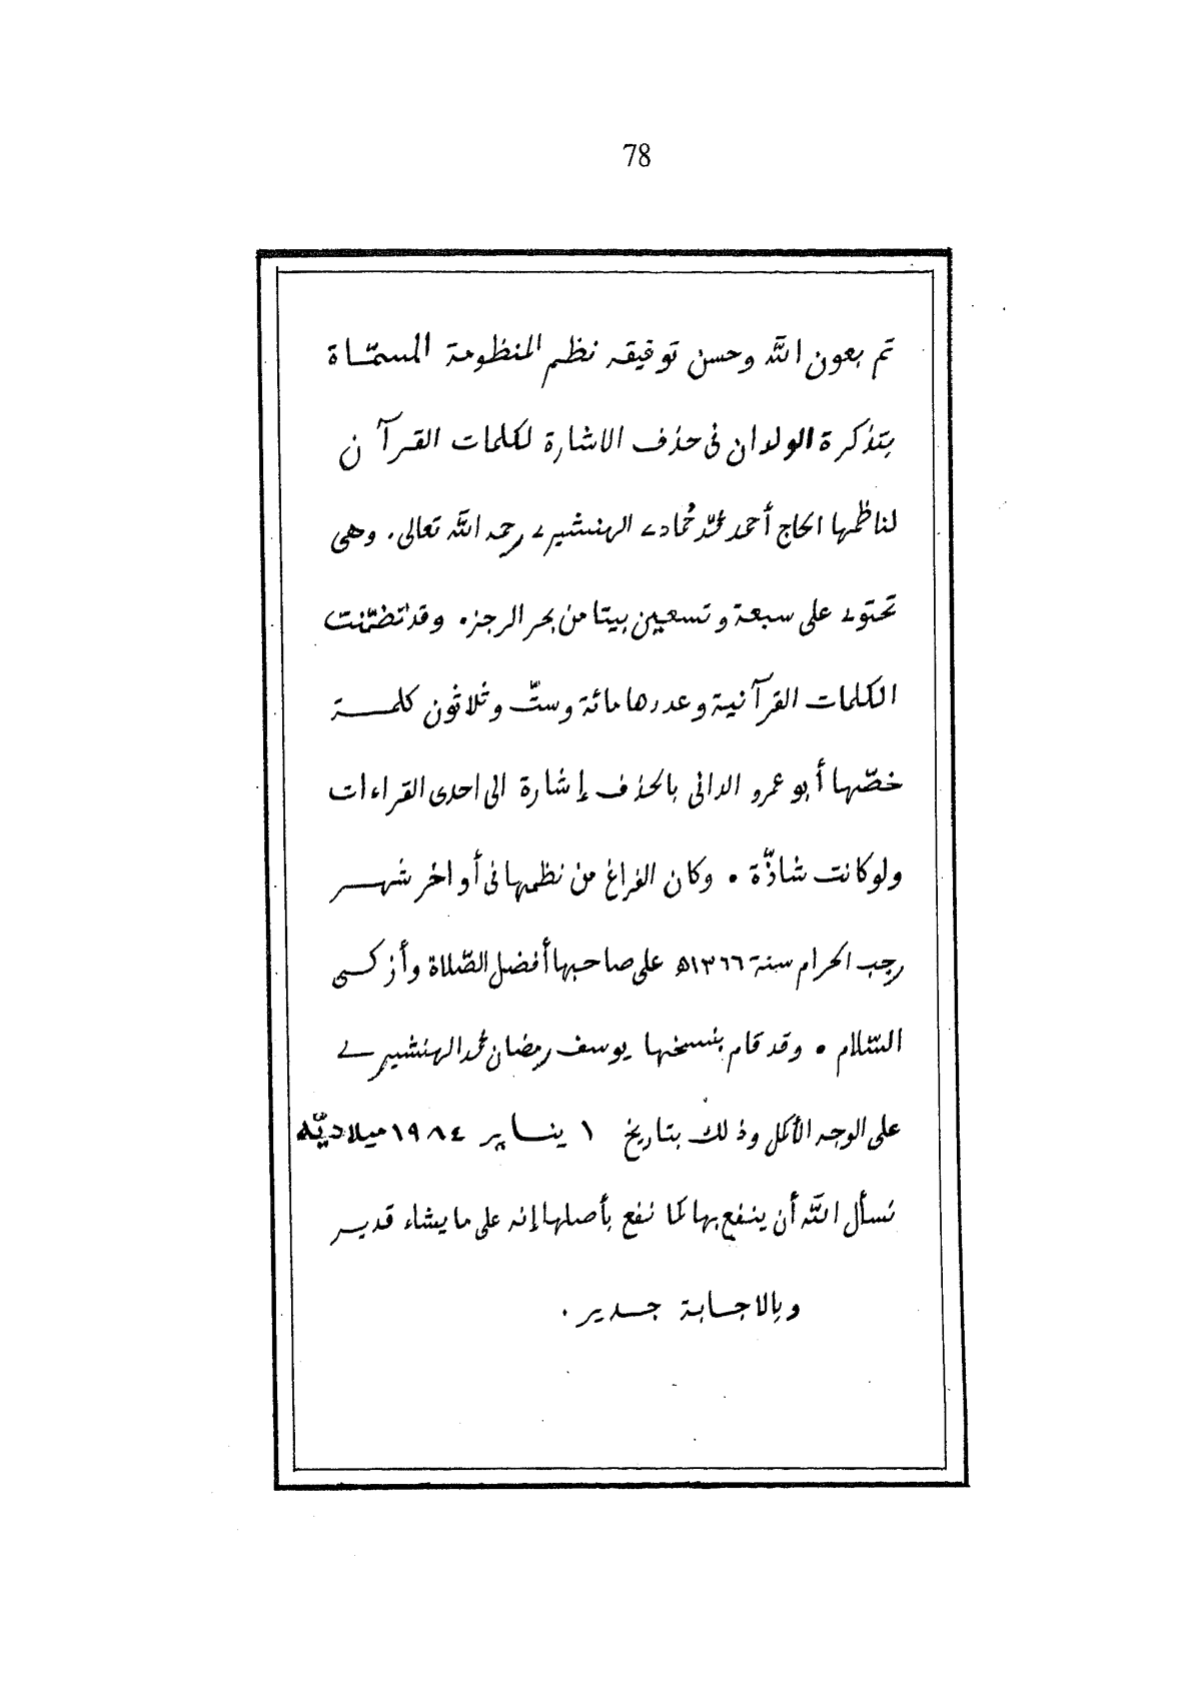 78
تم بعون اللّه وحسن توفيقه نظم المنظومة المسمّاة
بتذكرة الولدان فى حذف الاشارة لكلمات القرآن
لناظمها الحاج أحمد محمّد حمادى الهنشيرى رحمه اللّه تعالى. وهى
تحتوى على سبعة وتسعين بيتا من بحر الرجز. وقد تضمّنت
الكلمات القرآنية وعددها مائة وستّ وثلاثون كلمة
خصّها أبو عمرو الدانى بالحذف إشارة الى احدى القراءات
ولو كانت شاذّة . وكان الفراغ من نظمها فى أواخر شهر
رجب الحرام سنة ١٣٦٦ه على صاحبها أفضل الصّلاة وأزكى
السّلام . وقد قام بنسخها يوسف رمضان محمد الهنشيرى
على الوجه الأكمل وذلك بتاريخ ١ يناير ١٩٨٤ ميلاديّه
نسأل اللّه أن ينفع بها كما نفع بأصلها إنه على ما يشاء قدير
وبالاجابة جدير .